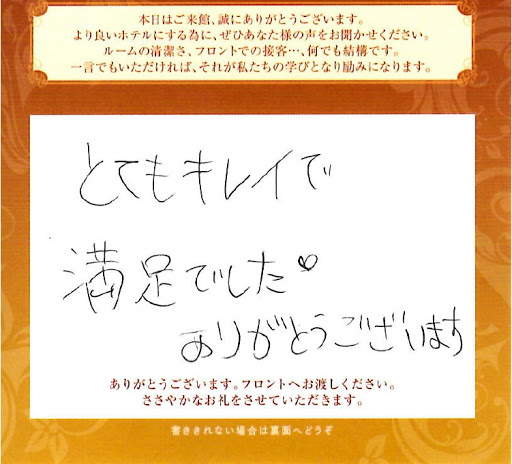 本日はご来館、誠にありがとうございます。
より良いホテルにする為に、ぜひあなた様の声をお聞かせください。
ルームの清潔さ、フロントでの接客…、何でも結構です。
一言でもいただければ、それが私たちの学びとなり励みになります。
とてもキレイで
満足でした♡
ありがとうございます
ありがとうございます。フロントへお渡しください。
ささやかなお礼をさせていただきます。
書ききれない場合は裏面へどうぞ